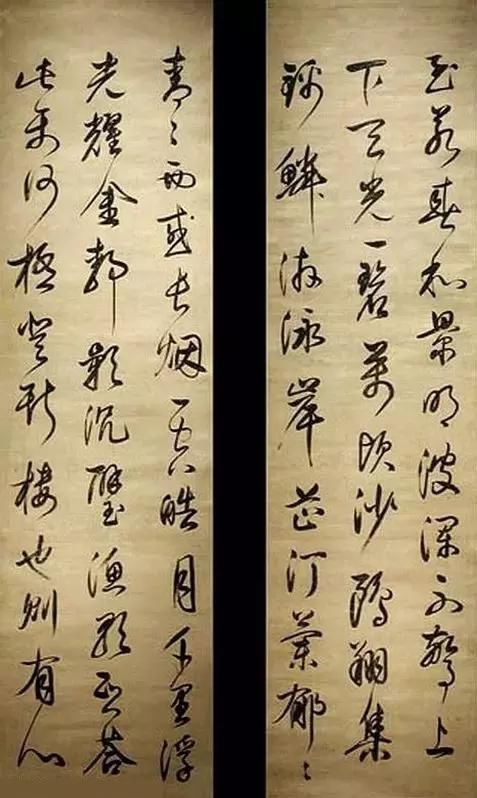 至若春和景明波瀾不驚上
下天光一碧萬頃沙鷗翔集
錦鱗游泳岸芷汀蘭郁々
青々而或長烟一空皓月千里浮
光耀金靜影沉璧漁歌互答
此樂何極登斯樓也則有心